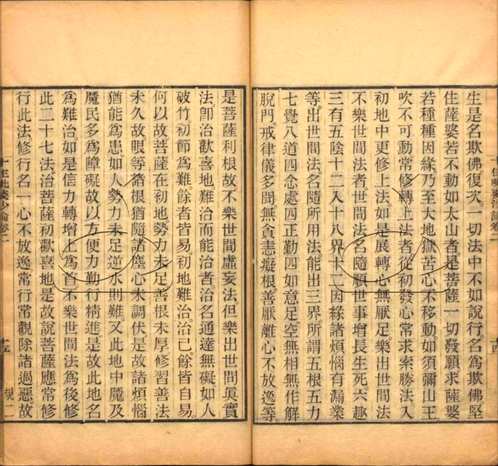 生是名欺佛復不如說行名為欺佛堅
住薩婆若不動如太山者是菩薩一切發願求薩婆
若種種因緣乃至大地獄苦心不移動如須彌山王
吹不可動常修轉上法者從初發心常求索勝法入
初地中更修上法如是展轉心無厭足樂出世間法
不樂世間法者世間法名隨順世事增長生死六趣
三有五陰十二入十八界十二因緣諸煩惱有漏業
等出世間法名隨所用法能出三界所說五根五力
七覺八道四念處四正勤四如意足空無相無作解
脫門戒律儀多聞無貪恚癡根善厭離心不放逸等
是菩薩利根故不樂世間虛妄法但樂出世間眞實
法卽治歡喜地難治而能治者治名通達無礙如人
破竹初節爲難餘者皆易初地難治治已餘皆自易
何以故菩薩在初地勢力未足善根未厚修習善法
未久故眼等諸根猶隨諸塵心未調伏是故諸煩惱
猶能爲患如人勢力未足逆水則難又此地中魔及
魔民多爲障礙故以方便力勤行精進是故此地名
爲難治如是信力轉增上爲首不樂世間法爲後修
此二十七法治菩薩初歡喜地是故說菩薩應常修
行此法修行名一心不放逸常行常觀除諸過惡故
十住毘婆沙論卷二
十五